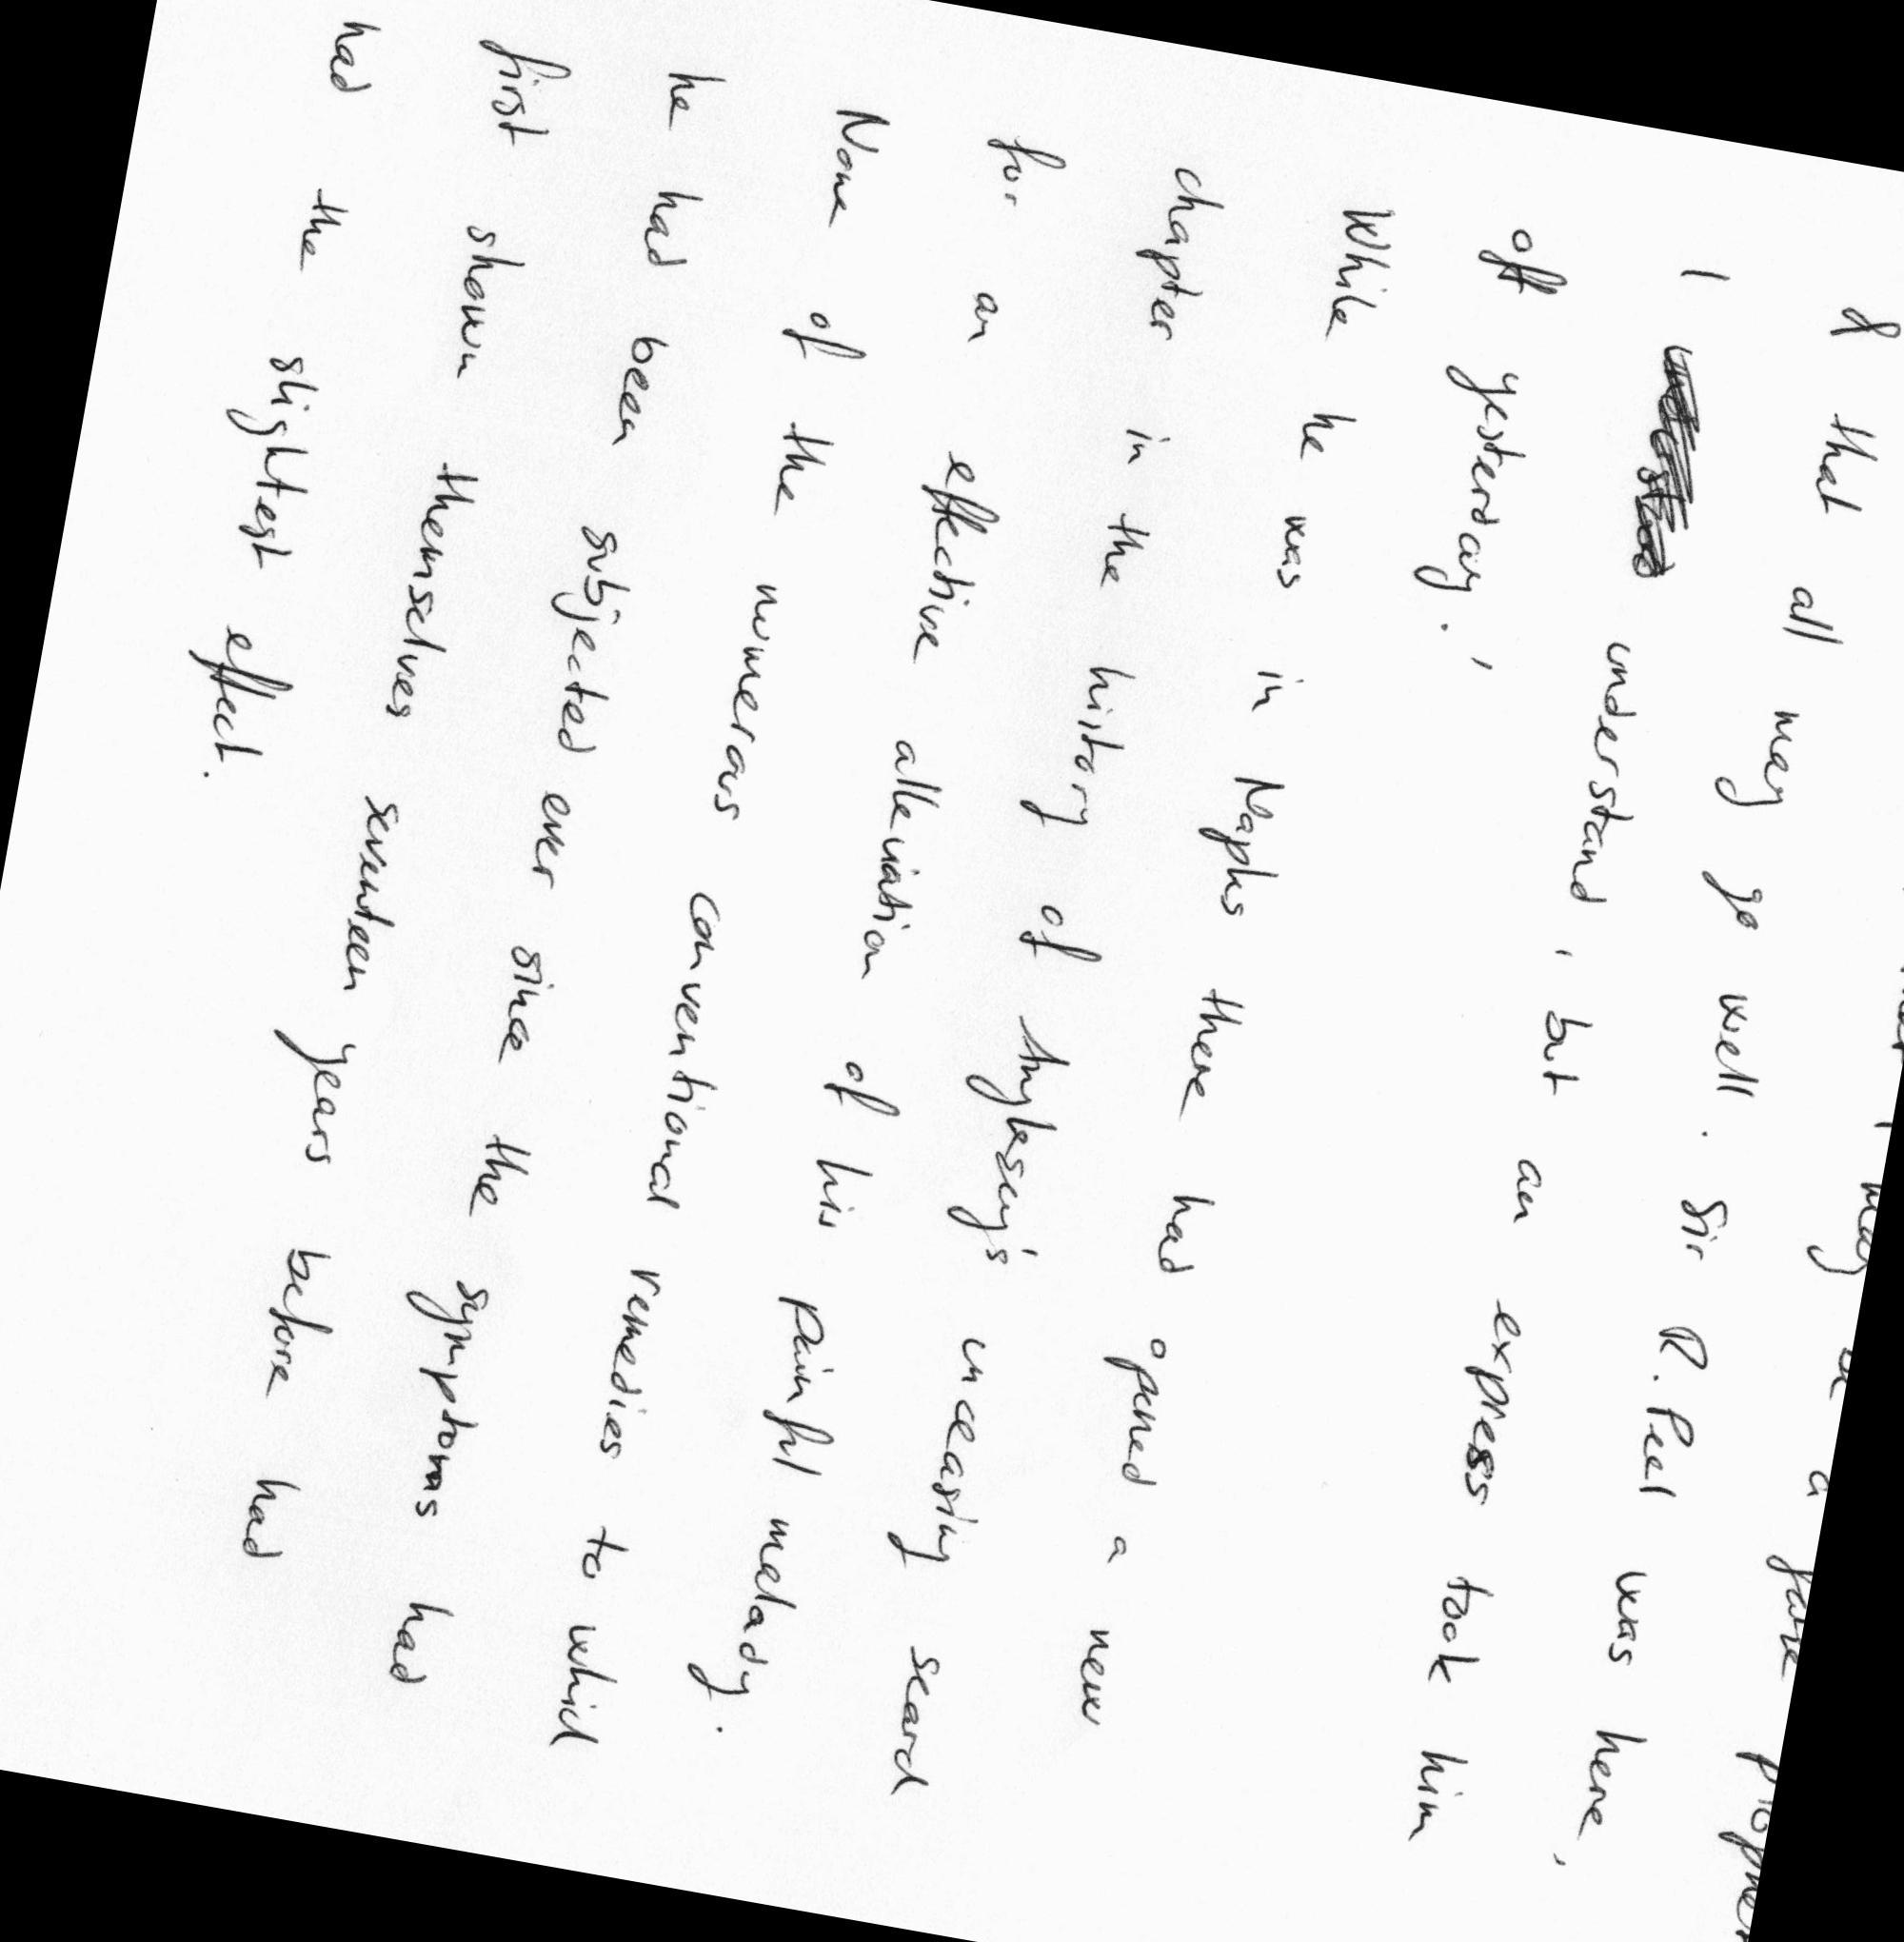 may a
& that all may go well. Sir R. Peel was here,
I understand, but an express took him
off yesterday.'
While he was in Naples there had opened a new
chapter in the history of Anglesey's unceasing search
for an effective alleviation of his painful malady.
None of the numerous conventional remedies to which
he had been subjected ever since the symptoms had
first shown themselves seventeen years before had
had the slightest effect.